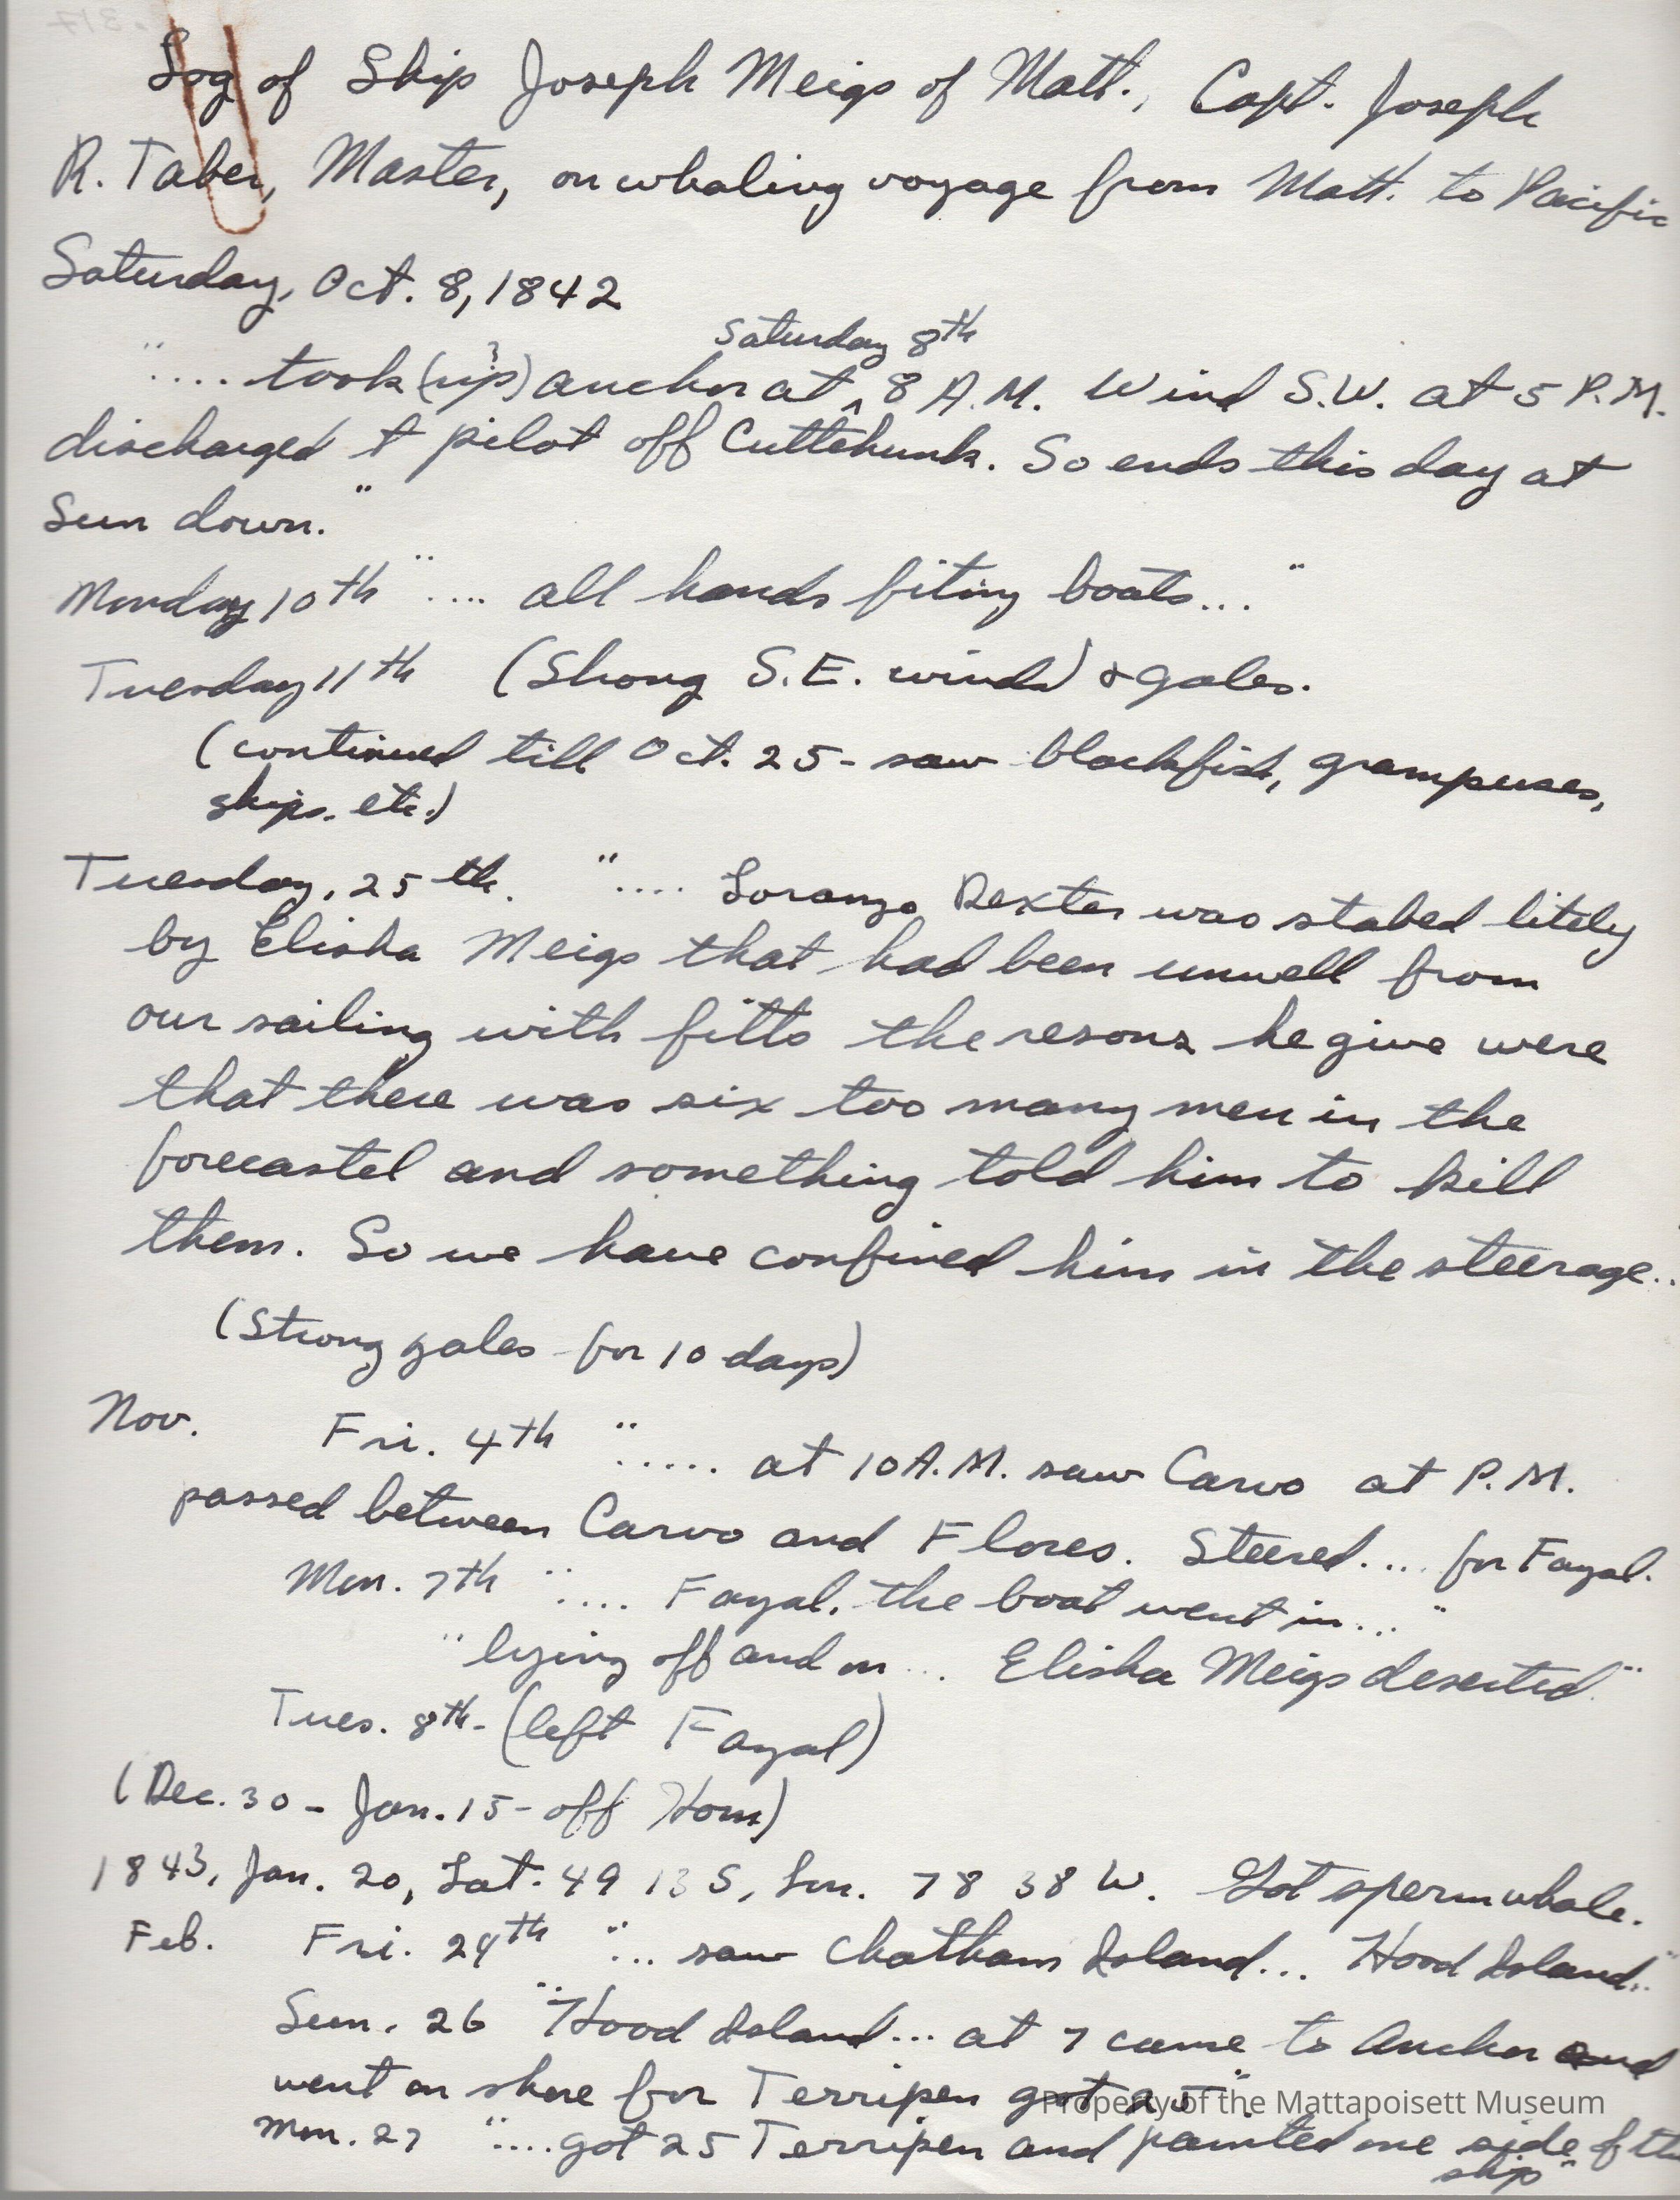 Log of Ship Joseph Meigs of Matt., Capt. Joseph
R. Taber, Master, on whaling voyage from Matt. to Pacific
Saturday, Oct. 8, 1842
Saturday 8th
".... took (up)? anchor at ^ 8 A.M. Wind S.W. at 5 P.M.
discharged t pilot off Cuttehunk. So ends this day at
Sun down."
Monday 10th ".... all hands fiting boats..."
Tuesday 11th (Strong S.E. winds) & gales.
(continued till Oct. 25 - saw blackfish, grampuses,
ships. etc.)
Tuesday, 25th. ".... Loranzo Dexter was stabed litely
by Elisha Meigs that had been unwell from
our sailing with fitts the resons he give were
that there was six too many men in the
forecastel and something told him to kill
them. So we have confined him in the steerage..
(Strong gales for 10 days)
Nov. Fri. 4th "..... at 10 A.M. saw Carvo at P.M.
passed between Carvo and Flores. Steered.... for Fayal.
Mon. 7th ".... Fayal, the boat went in...."
"lying off and on... Elisha Meigs deserted."
Tues. 8th - (left Fayal)
(Dec. 30 - Jan. 15 - off Horn)
1843, Jan. 20, Lat. 49 13 S, Lon. 78 38 W. Got sperm whale.
Feb. Fri. 24th "... saw Chatham Island... Hood Island.."
Sun. 26 "Hood Island... at 7 came to Anchor and
went on shore for Terripen got 25".
Mon. 27 "....got 25 Terripen and painted one side of the
ship"
Property of the Mattapoisett Museum